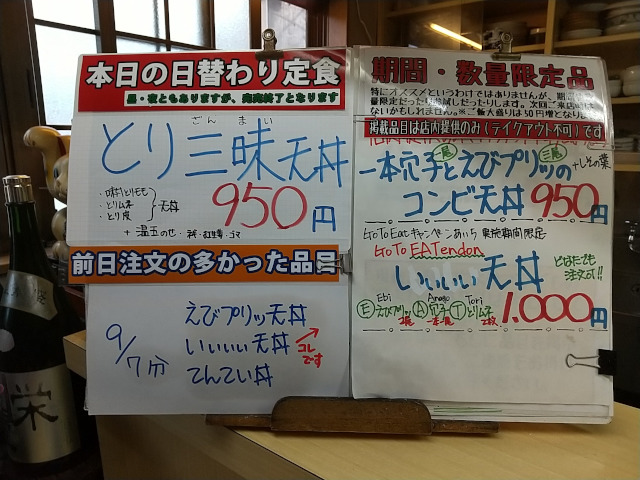 本日の日替わり定食
昼・夜ともありますが、完売終了となります
ざんまい
とり三昧天丼
・とりモモ
・とりムネ
・とり皮
天丼
950円
+温玉のせ・
前日注文の多かった品目
9/7分
えびプリッ天丼
いいいい天丼
てんてい丼
コレです
期間・数量限定品
特にオススメというわけではありませんが、期
量限定だった
ないかもしれません。※ご飯大盛りは50円増となり
掲載品目は店内提供のみ(テイクアウト不可)です
一本穴子とえびプリッの
+しその葉
コンビ天丼 950円
GoToEatキャンペーンあいち 実施期間限定
GoTo EATendon
いいいい天丼
どなたでも注文可!!
Ebi Anago Tori
Ⓔえびプリッ2尾 Ⓐ穴子一本 Ⓣとりムネ2枚
1.000円
栄